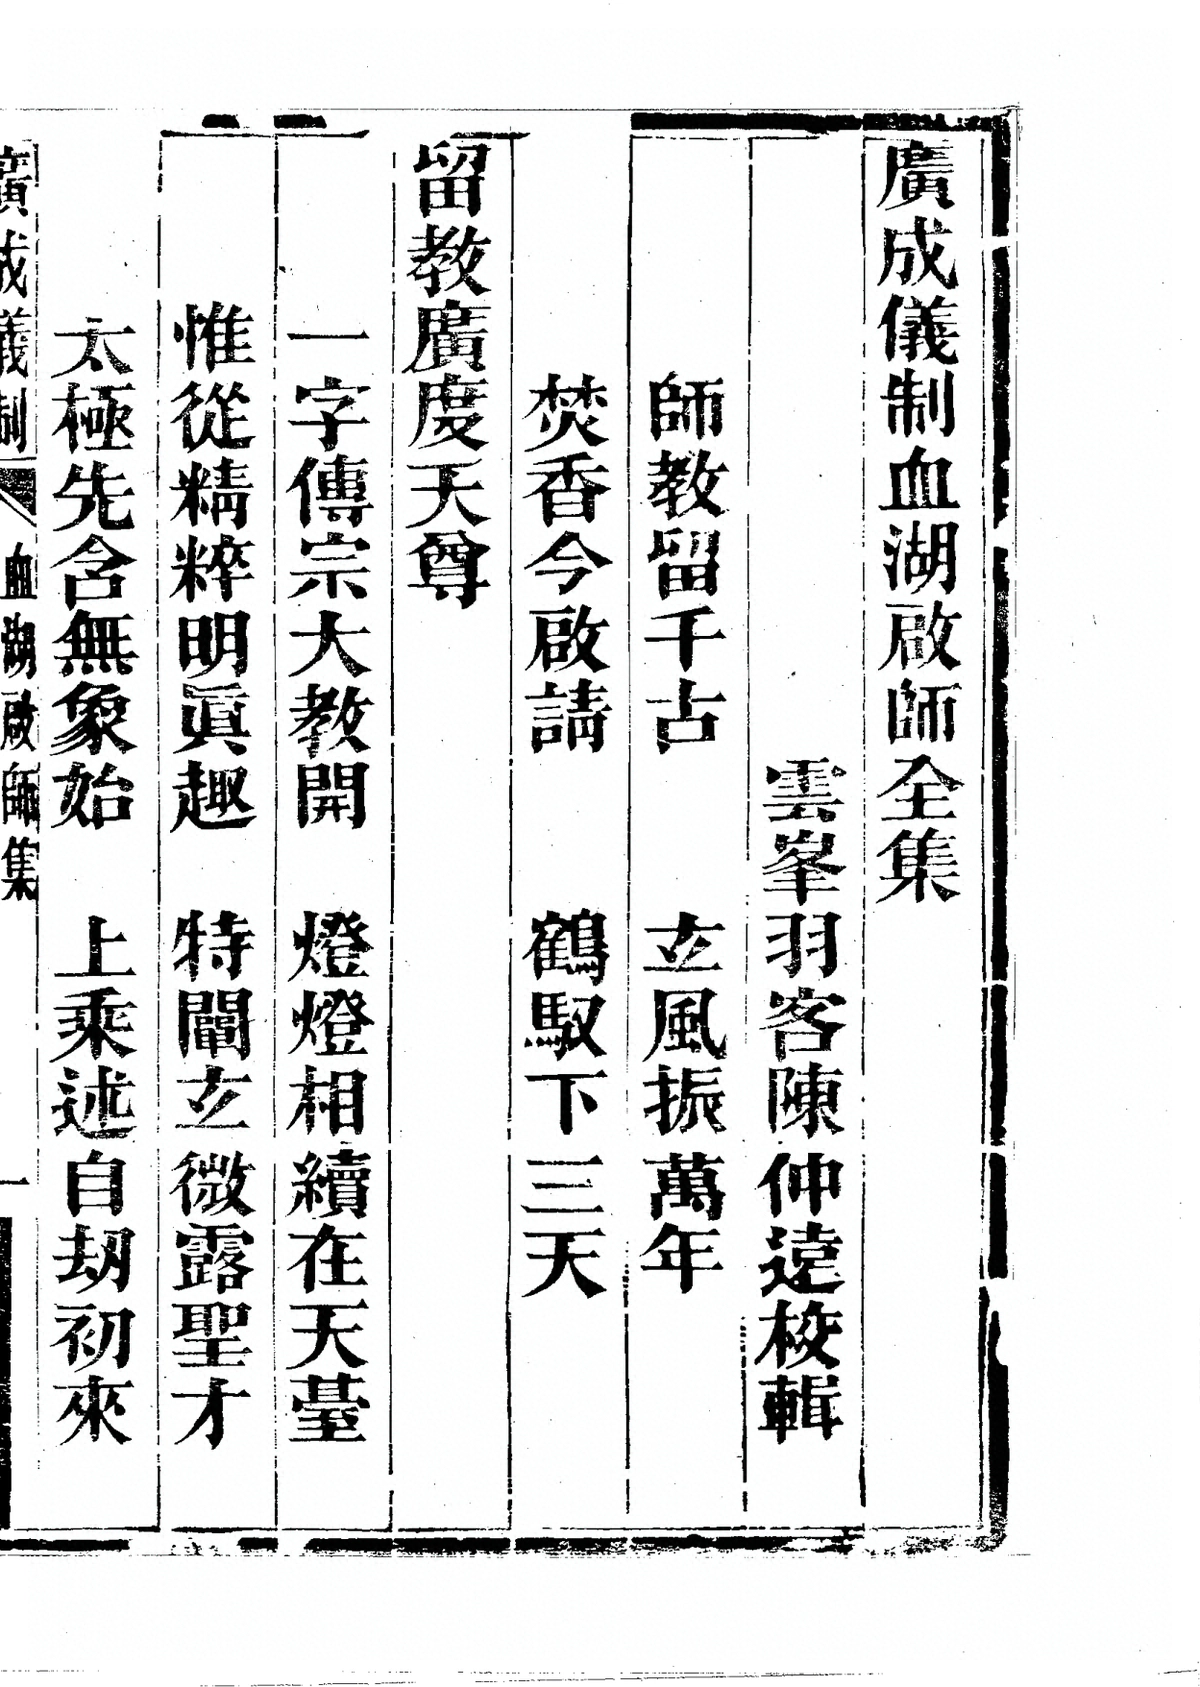 廣成儀制血湖啟師全集
雲峯羽客陳仲遠校輯
師教留千古　玄風振萬年
焚香今啟請　鶴馭下三天
留教廣度天尊
一字傳宗大教開　燈燈相續在天臺
惟從精粹明眞趣　特闡玄微露聖才
太極先含無象始　上乘述自刼初來
廣成儀制　血湖啟師集　一